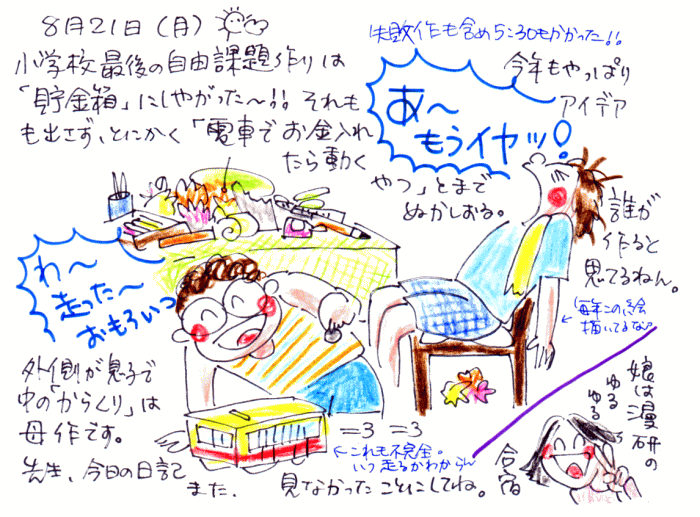 8月21日(月)
小学校最後の自由課題作りは
「貯金箱」にしやがった〜!! それも
失敗作も含め5こ30もかかった!!
今年もやっぱり
アイデア
も出さず、とにかく「電車でお金入れ
たら動く
やつ」とまで
ぬかしおる。
あ〜
もうイヤッ!
誰が
作ると
思てるねん。
毎年この絵
描いてるな
わ〜
走った〜
おもろいっ
外側が息子で
中の「からくり」は
母作です。
=3 =3
←これも不完全。
いつ走るかわからん
先生、今日の日記
また、見なかったことにしてね。
娘は漫研の
ゆるゆる
合宿